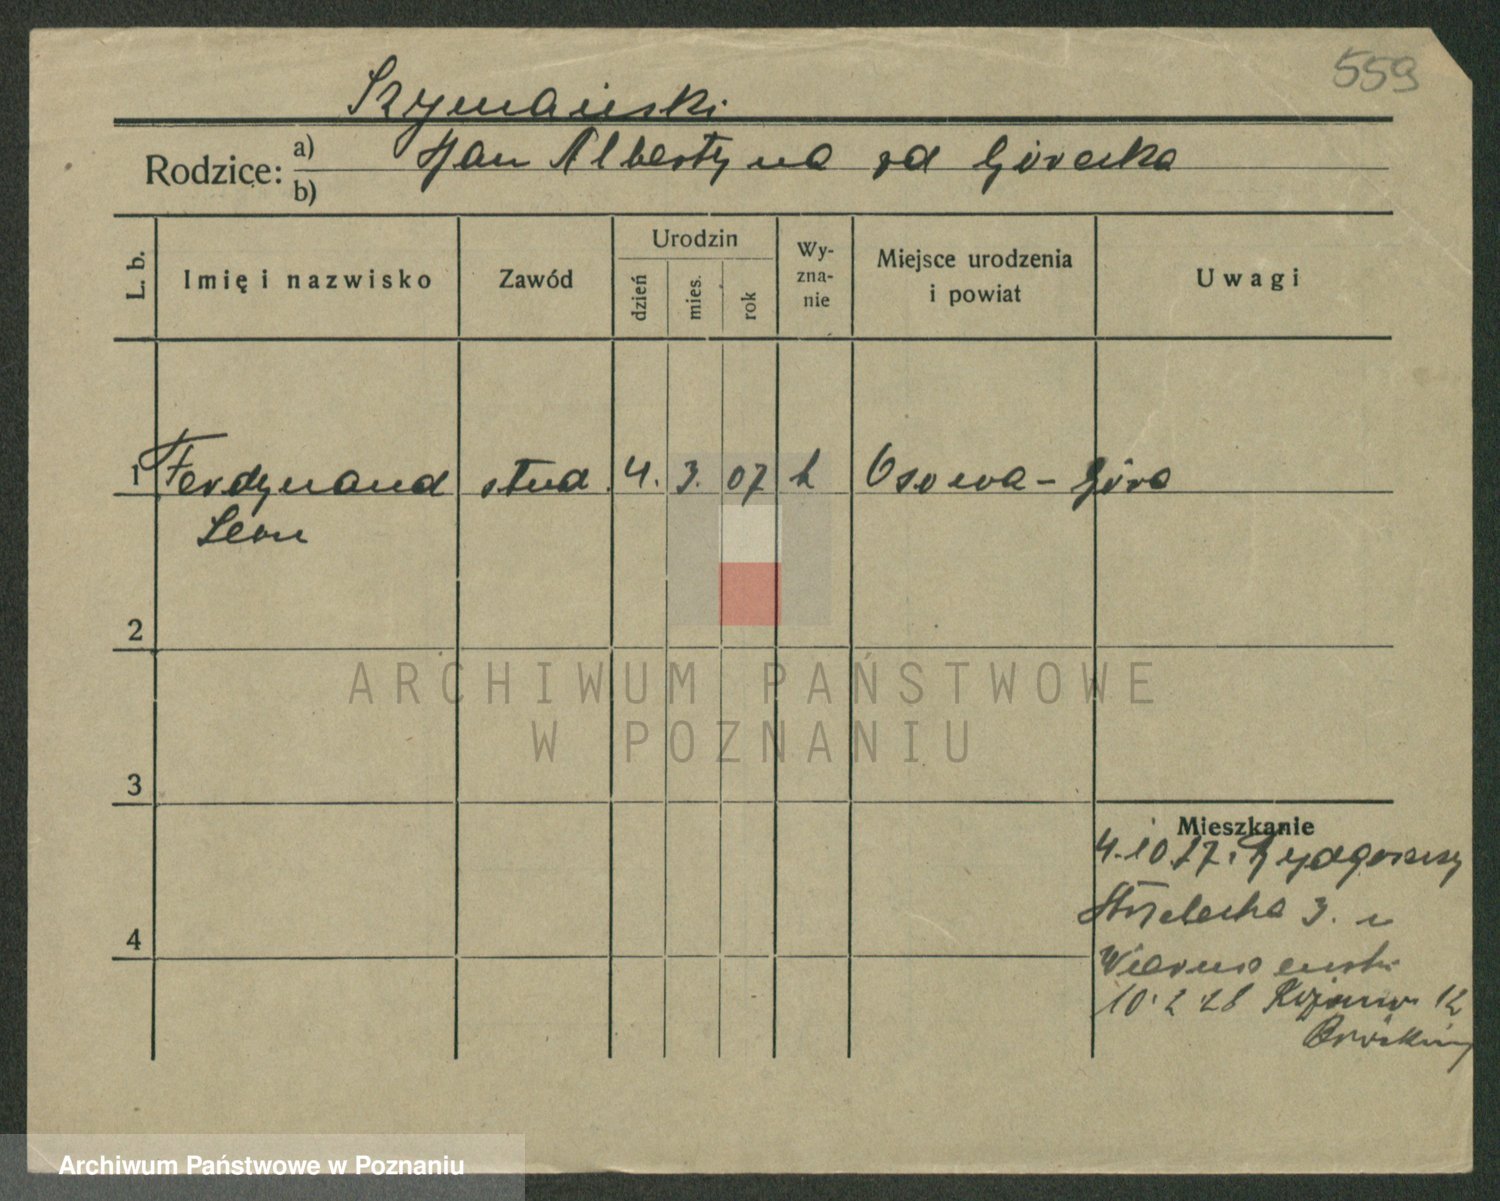 559
Szymański
Rodzice: a) Jan Albertyna zd Górecka
b)
L. b.
Imię i nazwisko
Zawód
Urodzin
dzień
mies.
rok
Wy-
zna-
nie
Miejsce urodzenia
i powiat
Uwagi
1 Ferdynand stud 4. 3. 07 k Osowa-Góra
Leon
2
ARCHIWUM PAŃSTWOWE
W POZNANIU
3
Mieszkanie
4.10.27. Bydgoszczy
4
Strzelecka 3. u
10.2.28 12
Archiwum Państwowe w Poznaniu